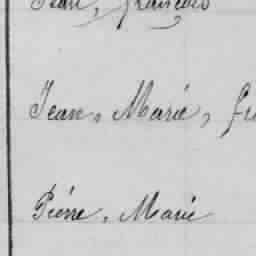 Jean, François
Jean, Marie, fr
Pierre, Marie